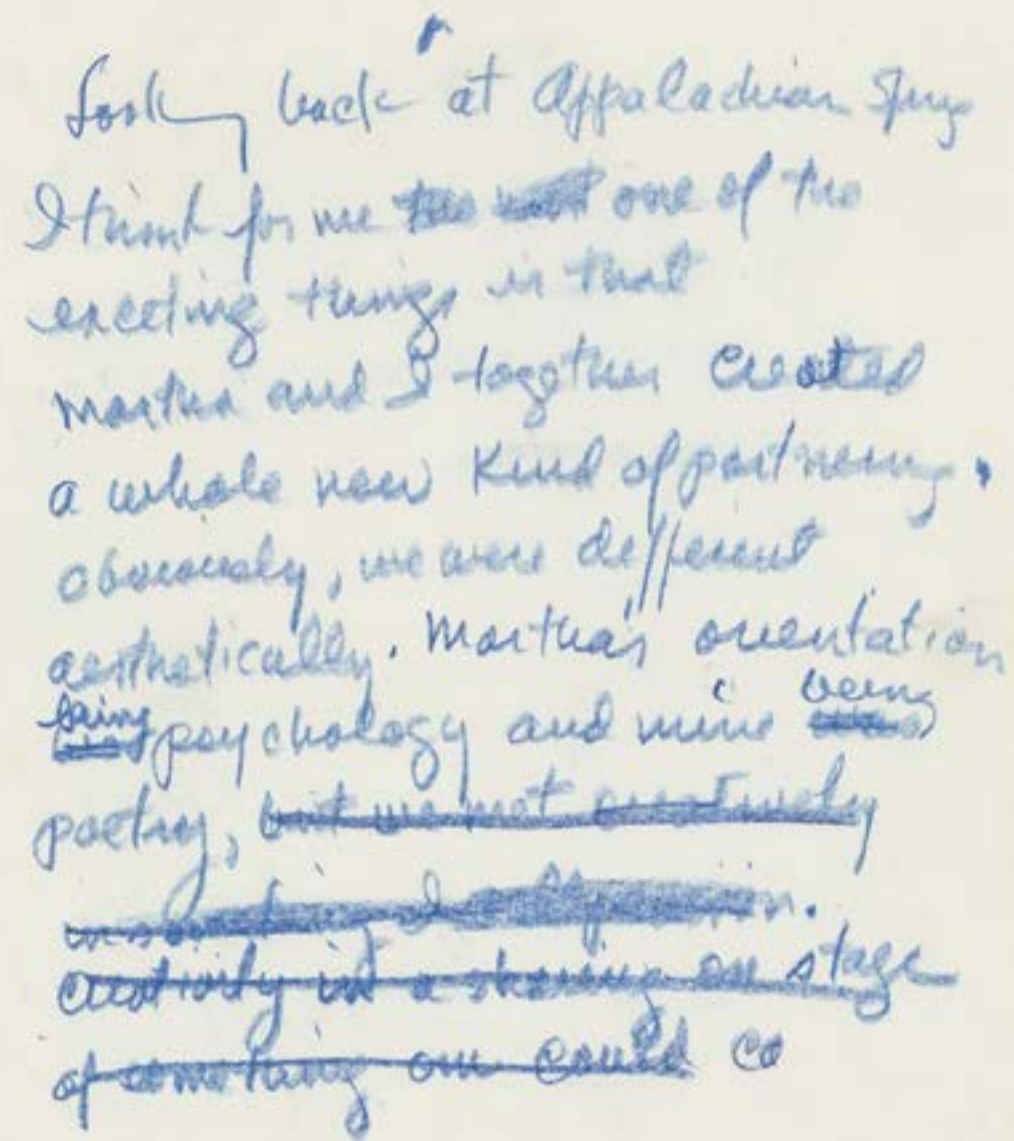 Looking back at Appalachian Spring
I think for me the most one of the
exceting things is that
Martha and I together created
a whole new kind of partnering.
obviously, we were different
aesthetically. Martha's orientation
being psychology and mine being
poetry, but we met creatively
creativity in a sharing on stage
of something one could co